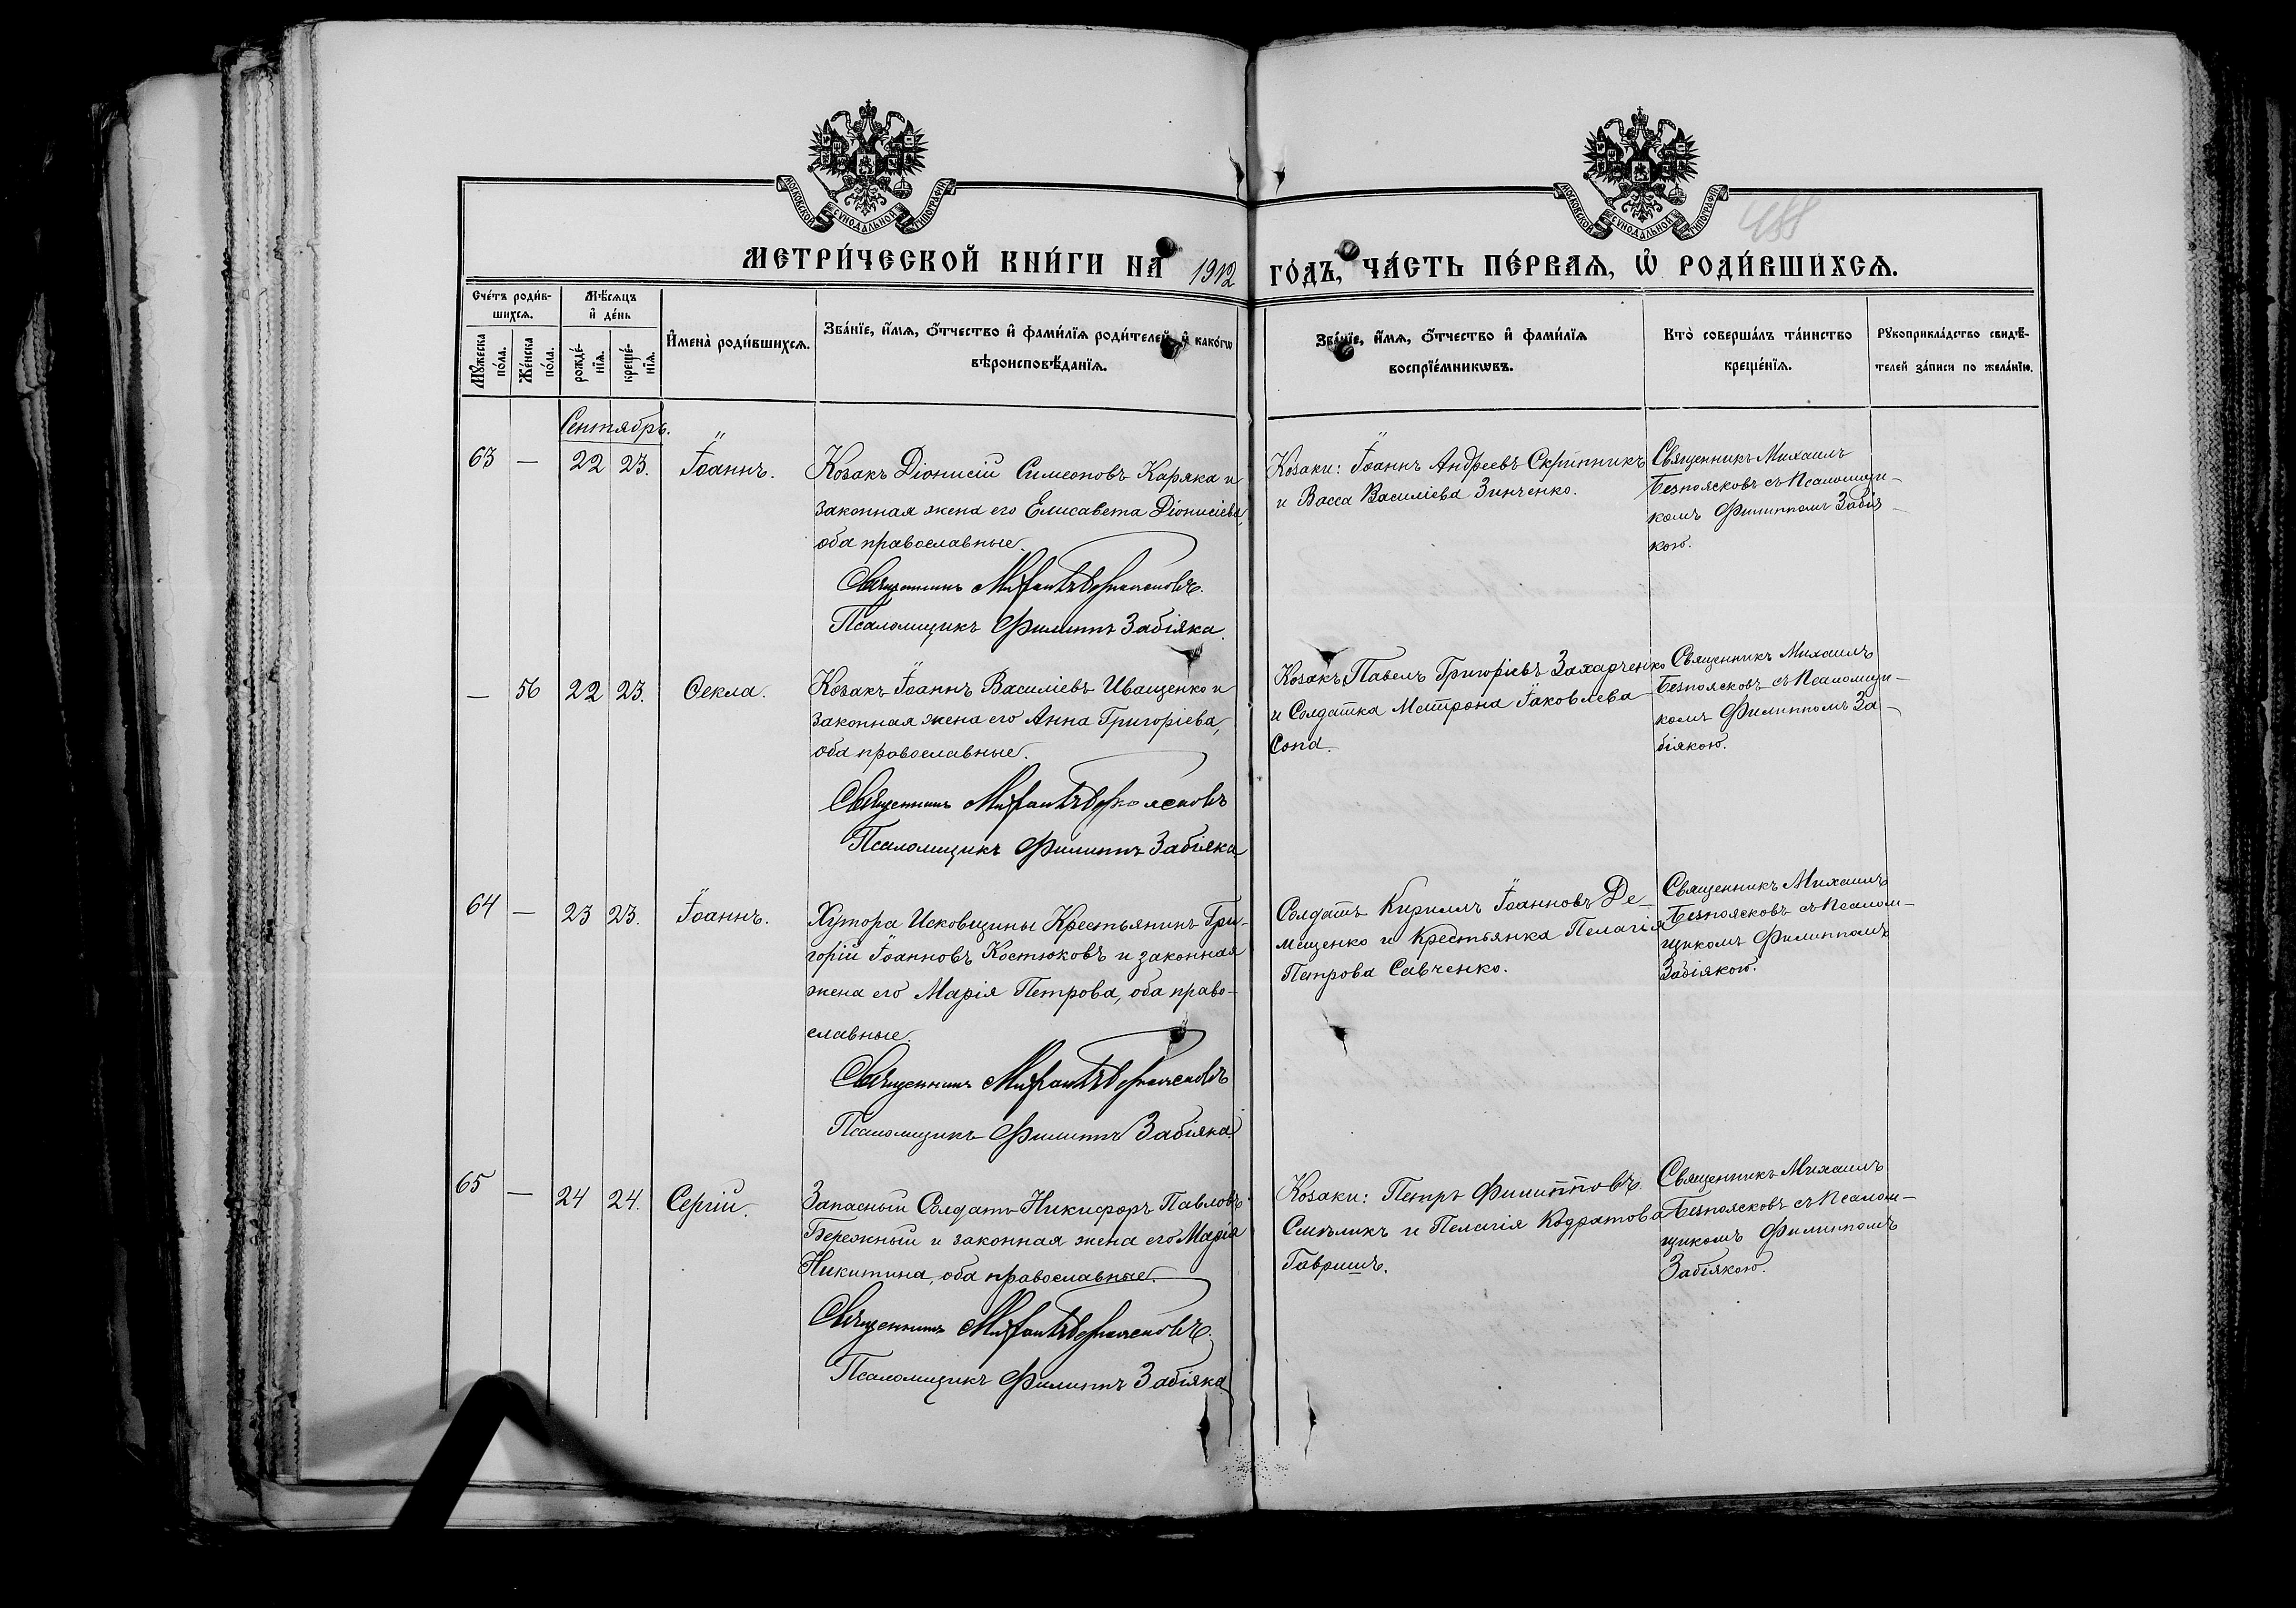 МОСКОВСКОЙ СѴНОДАЛЬНОЙ ТИПОГРАФІИ
МОСКОВСКОЙ СѴНОДАЛЬНОЙ ТИПОГРАФІИ
МЕТРИ́ЧЕСКОЙ КНИ́ГИ НА 1912 ГО́ДЪ, ЧА́СТЬ ПЕ́РВАѦ, Ѡ҆ РОДИ́ВШИХСѦ.
Сче́тъ роди́в-
шихсѧ.
Мѣ́сѧцъ
и҆ де́нь
Мꙋ́жеска
по́ла.
Же́нска
по́ла.
рожде́-
нїѧ.
креще́-
нїѧ.
И҆мена̀ роди́вшихсѧ.
Зва́нїе, и҆́мѧ, ѻ҆́тчество и҆ фами́лїѧ роди́телей, и҆ како́гѡ
вѣроисповѣ́данїѧ.
Зва́нїе, и҆́мѧ, ѻ҆́тчество и҆ фами́лїѧ
воспрїе́мникѡвъ.
Кто̀ соверша́лъ та́инство
креще́нїѧ.
Рꙋкоприкла́дство свидѣ́-
телей за́писи по жела́нїю.
Сентябрь.
63 — 22 23. Іоаннъ.
Козакъ Діонисій Симеоновъ Каряка и
законная жена его Елисавета Діонисіева,
оба православные.
Священникъ Михаилъ Безпоясковъ.
Псаломщикъ Филиппъ Забіяка.
Козаки: Іоаннъ Андреевъ Скрипникъ
и Васса Василіева Зинченко.
Священникъ Михаилъ
Безпоясковъ съ Псаломщи-
комъ Филиппомъ Забія-
кою.
— 56 22 23. Ѳекла.
Козакъ Іоаннъ Василіевъ Иващенко и
законная жена его Анна Григоріева,
оба православные.
Священникъ Михаилъ Безпоясковъ
Псаломщикъ Филиппъ Забіяка
Козакъ Павелъ Григоріевъ Захарченко
и Солдатка Матрона Іаковлева
Сопа.
Священникъ Михаилъ
Безпоясковъ съ Псаломщи-
комъ Филиппомъ За-
біякою.
64 — 23 23. Іоаннъ.
Хутора Исковщины Крестьянинъ Гри-
горій Іоанновъ Костюковъ и законная
жена его Марія Петрова, оба право-
славные.
Священникъ Михаилъ Безпоясковъ
Псаломщикъ Филиппъ Забіяка
Солдатъ Кириллъ Іоанновъ Де-
мещенко и Крестьянка Пелагія
Петрова Савченко.
Священникъ Михаилъ
Безпоясковъ съ Псалом-
щикомъ Филиппомъ
Забіякою.
65 — 24 24. Сергій.
Запасный Солдатъ Никифоръ Павловъ
Бережный и законная жена его Марія
Никитина, оба православные.
Священникъ Михаилъ Безпоясковъ.
Псаломщикъ Филиппъ Забіяка
Козаки: Петръ Филипповъ
Смѣликъ и Пелагія Кодратова
Гавришъ.
Священникъ Михаилъ
Безпоясковъ съ Псалом-
щикомъ Филиппомъ
Забіякою.